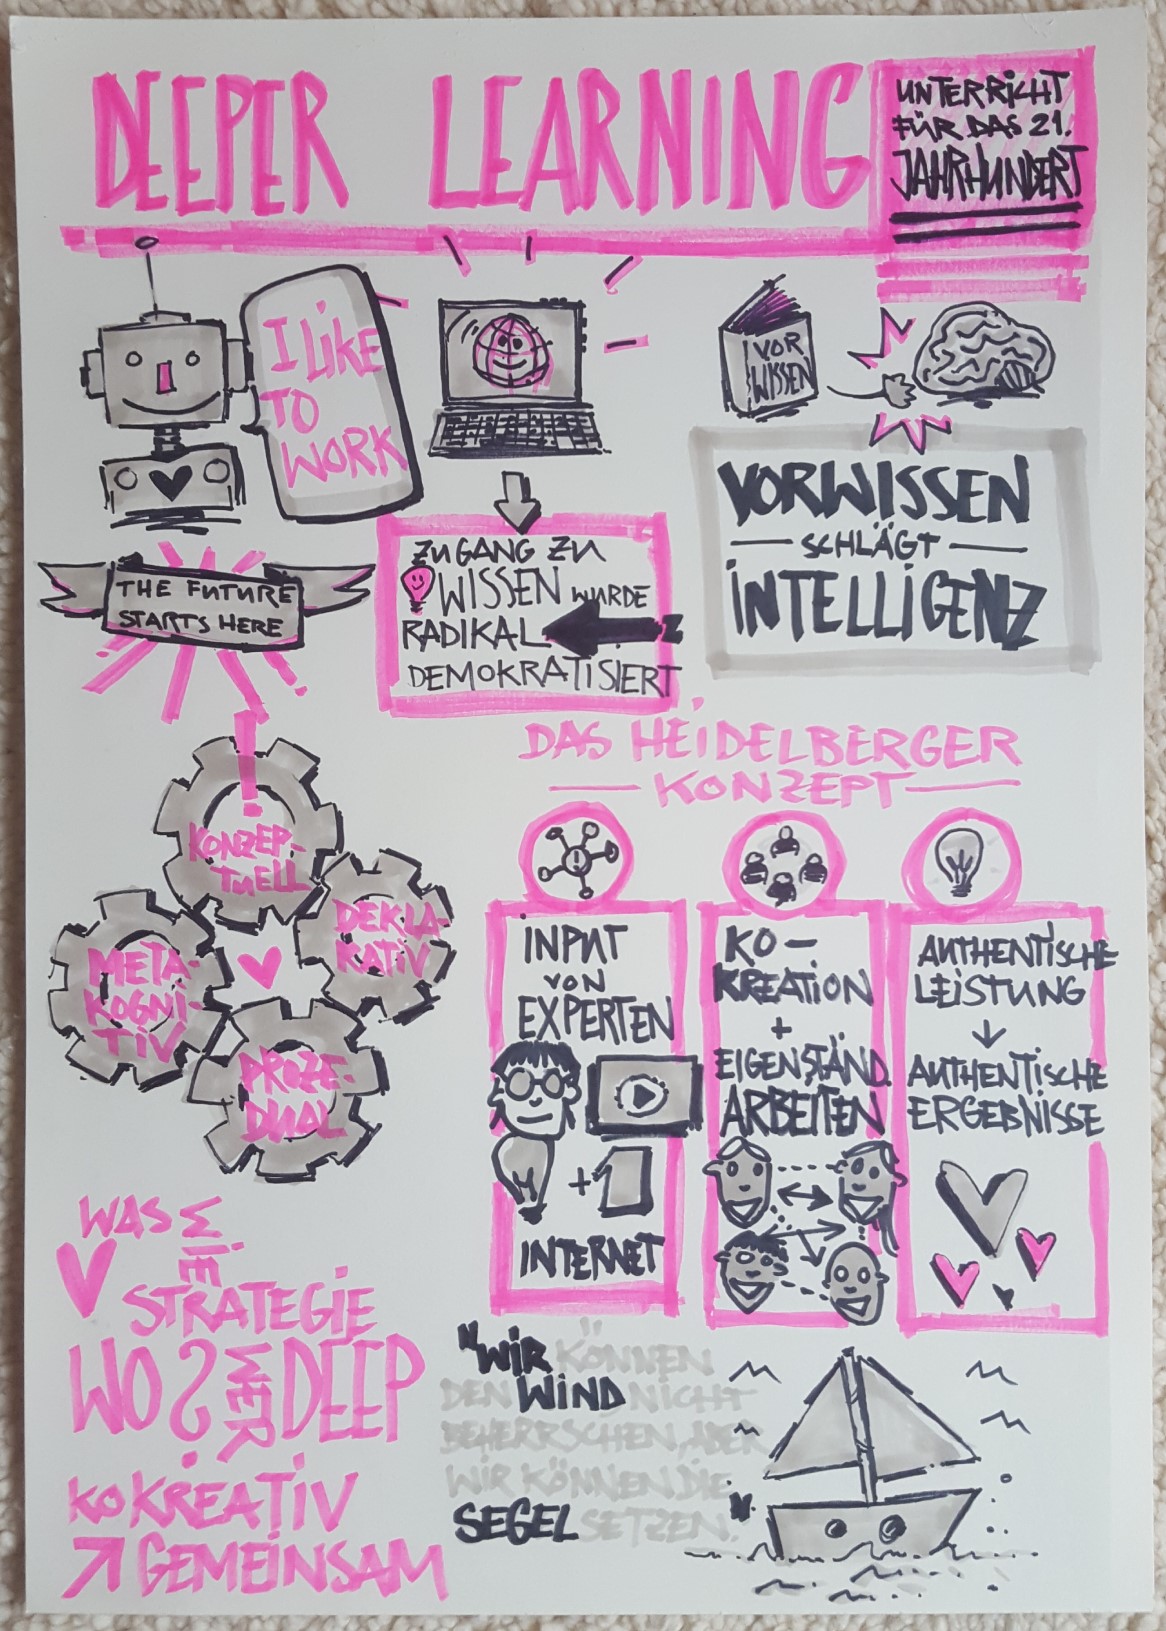 DEEPER LEARNING
UNTERRICHT
FÜR DAS 21.
JAHRHUNDERT
I LIKE
TO
WORK
VOR
WISSEN
THE FUTURE
STARTS HERE
ZUGANG ZU
WISSEN WURDE
RADIKAL
DEMOKRATISIERT
VORWISSEN
SCHLÄGT
INTELLIGENZ
!
KONZEP-
TUELL
DEKLA-
RATIV
META-
KOGNI-
TIV
PROZE-
DUAL
DAS HEIDELBERGER
KONZEPT
INPUT
VON
EXPERTEN
+
INTERNET
KO-
KREATION
+
EIGENSTÄND.
ARBEITEN
AUTHENTISCHE
LEISTUNG
AUTHENTISCHE
ERGEBNISSE
WAS WIE
STRATEGIE
WO ? WER DEEP
KOKREATIV
GEMEINSAM
"WIR KÖNNEN
DEN WIND NICHT
BEHERRSCHEN, ABER
WIR KÖNNEN DIE
SEGEL SETZEN."